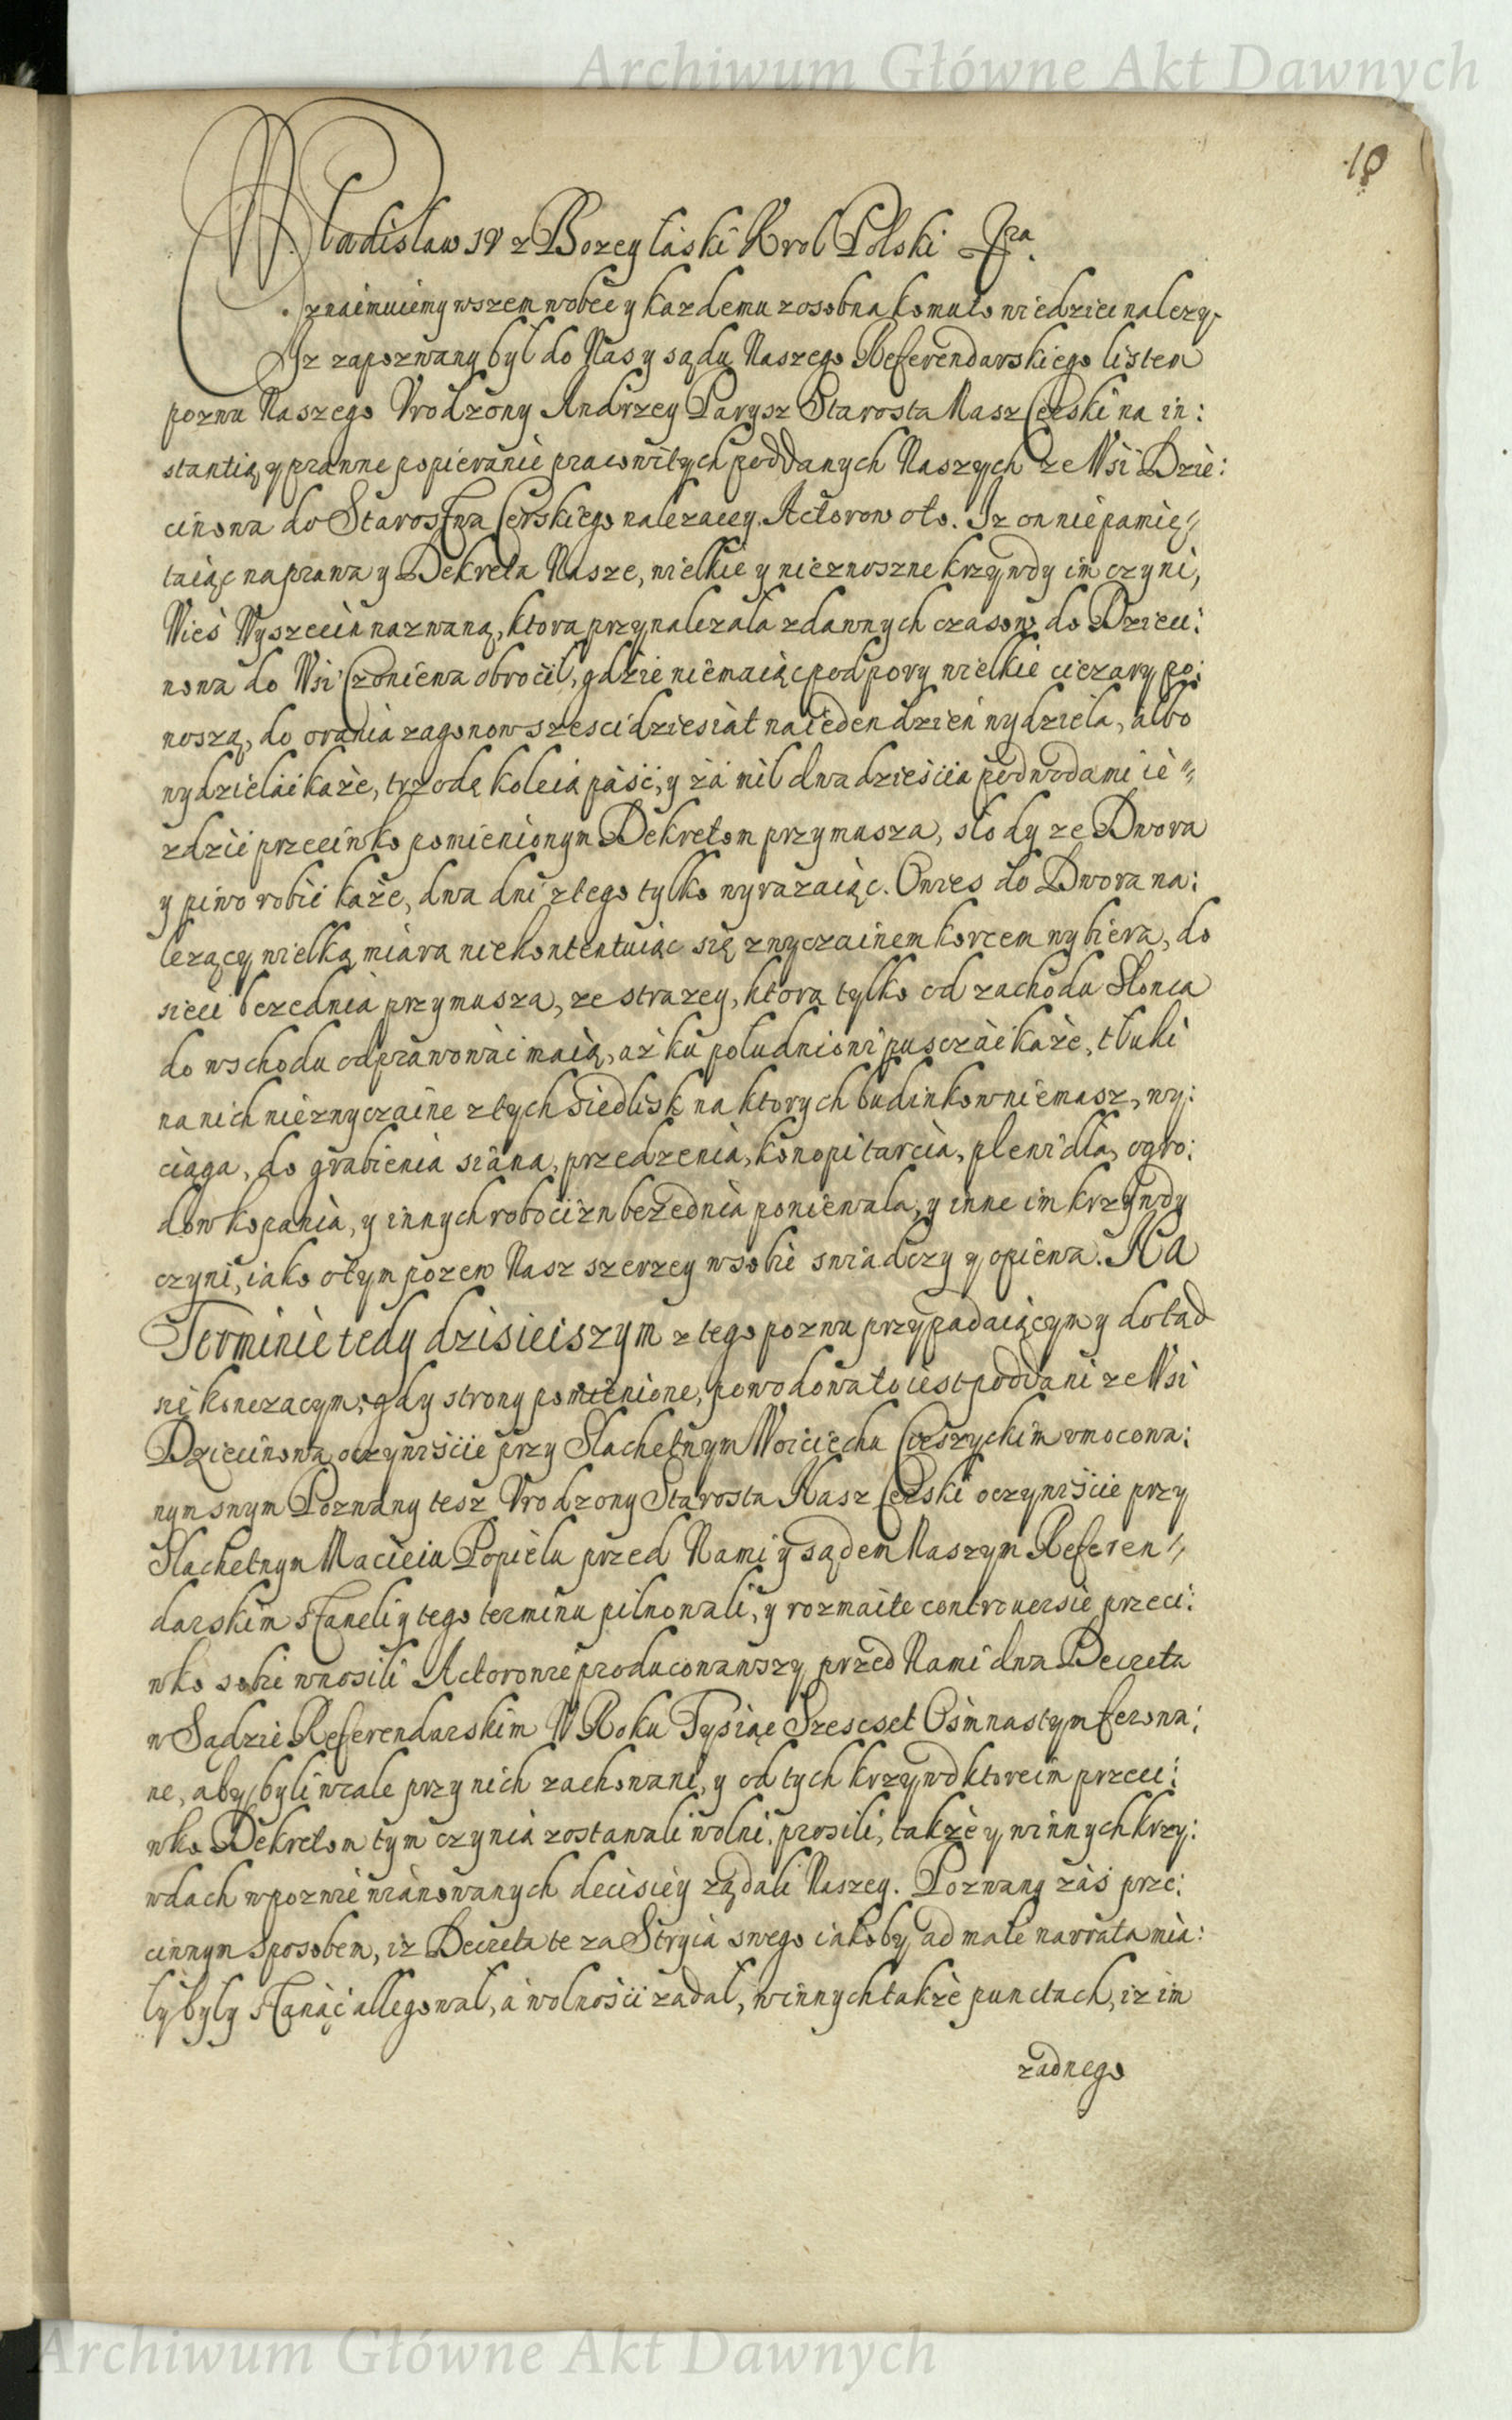 Archiwum Główne Akt Dawnych
18
Wladislaw IV z Bozey laski Krol Polski Etc.
Oznaimuiemy wszem wobec y kazdemu zosobna komu to wiedziec nalezy.
Iz zapozwany był do Nas y sądu Naszego Referendarskiego listem
pozwu Naszego Vrodzony Andrzey Parysz Starosta Nasz Cerski na in:
stantią y prawne popieranie pracowitych poddanych Naszych ze Wsi Dzie:
cinowa do Starostwa Cerskiego nalezacey Actorow oto. Iz on niepamię//
taiąc na prawa y Dekreta Nasze, wielkie y nieznoszne krzywdy im czyni,
Wieś Wyszecin nazwaną, ktora przynalezala zdawnych czasow do Dzieci:
nowa do Wsi Czoniewa obrocił, gdzie niemaiąc podpory wielkie ciezary po:
noszą, do orania zagonow szescidziesiat na ieden dzien wydziela, albo
wydzielac każe, trzodę koleią paść, y zá mil dwadzieścia podwodami ie//
zdzić przeciwko pomienionym Dekretom przymusza, słody ze Dwora
y piwo robić każe, dwa dni ztego tylko wyrazaiąc. Owies do Dwora na:
lezący wielką miarą niekontentuiąc się zwyczainem korcem wybiera, do
sieci bezednia przymusza, ze strazey, ktora tylko od zachodu Słonca
do wschodu odprawowac maią, aż ku południowi pusczáć każe, tłuki
na nich niezwyczaine z tych siedlisk na ktorych budinkow niemasz, wy:
ciąga, do grabienia siana, przedzenia, konopi tarcia, plewidla, ogro:
dow kopania, y innych robocizn bezednia poniewala, y inne im krzywdy
czyni, iako o tym pozew Nasz szerzey wsobie swiadczy y opiewa. Na
Terminie tedy dzisieiszym z tego pozwu przypadaiącym y dotad
się konczacym, gdy strony pomienione, powodowa to iest poddani ze Wsi
Dziecinowa oczywiscie przy Slachetnym Woiciechu Cieszyckim vmocowa:
nym swym Pozwany tesz Vrodzony Starosta Nasz Cerski oczywiście przy
Slachetnym Macieiu Popielu przed Nami y sądem Naszym Referen//
darskim staneli y tego terminu pilnowali, y rozmaite controuersie przeci:
wko sobie wnosili Actorowie producowawszy przed Nami dwa Decreta
w Sądzie Referendarskim W Roku Tysiąc Szescset Osmnastym ferowa:
ne, aby byli wcale przy nich zachowani, y od tych krzywd ktore im przeci:
wko Dekretom tym czynią zostawali wolni, prosili, także y winnych krzy:
wdach wpozwie mianowanych decisiey ządali Naszey. Pozwany zaś prze:
ciwnym sposobem, iz Decreta te za Stryia swego iakoby ad male narrata mia:
ly byly stanąć allegowal, a wolności ządał, winnych także punctach, iz im
zadnego
Archiwum Główne Akt Dawnych